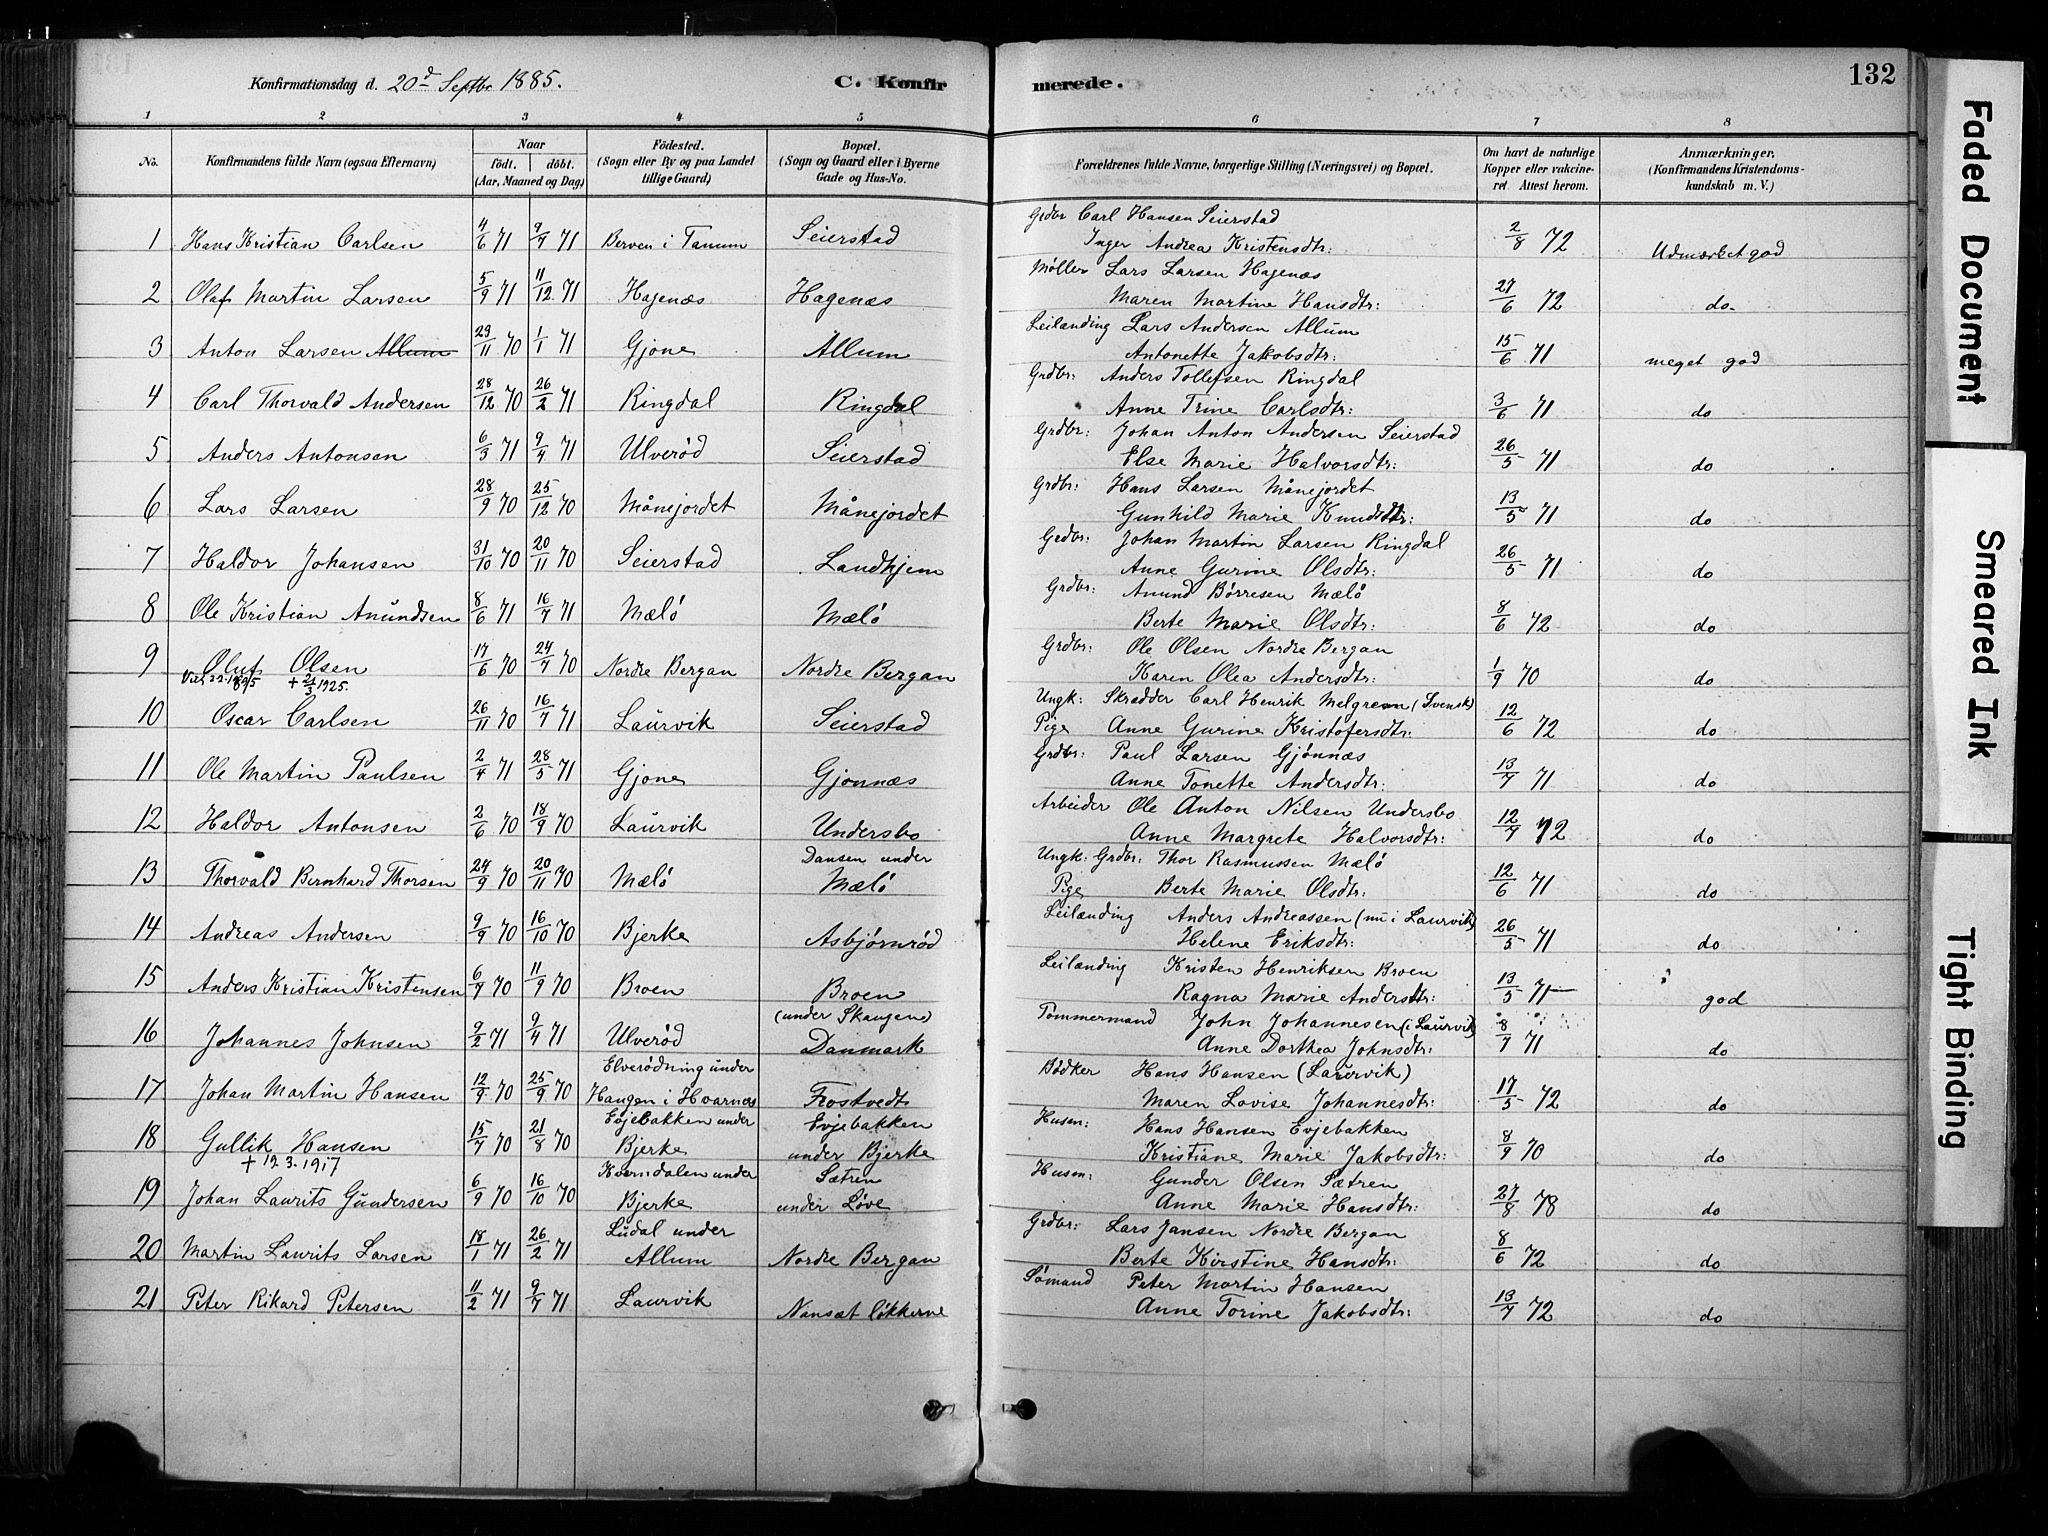 Konfirmationsdag d. 20d Septbr 1885.
C. Konfir
merede.
132
1 2 3 4 5 6 7 8
No.
Konfirmandens fulde Navn (ogsaa Efternavn)
Naar
født. døbt.
(Aar, Maaned og Dag)
Fødested.
(Sogn eller By og paa Landet
tillige Gaard)
Bopæl.
(Sogn og Gaard eller i Byerne
Gade og Hus-No.
Forældrenes fulde Navne, borgerlige Stilling (Næringsvei) og Bopæl.
Om havt de naturlige
Kopper eller vakcine-
ret. Attest herom.
Anmærkninger.
(Konfirmandens Kristendoms-
kundskab m. V.)
1 Hans Kristian Carlsen 4/6 71 9/7 71 Berven i Tanum Seierstad Grdbr Carl Hansen Seierstad
Inger Andrea Kristensdtr: 2/8 72 Udmærket god
2 Olaf Martin Larsen 5/9 71 11/12 71 Hagenæs Hagenæs Møller Lars Larsen Hagenæs
Maren Martine Hansdtr: 27/6 72 do.
3 Anton Larsen Allum 29/11 70 1/1 71 Gjone Allum Leilænding Lars Andersen Allum
Antonette Jakobsdtr: 15/6 71 meget god
4 Carl Thorvald Andersen 28/12 70 26/2 71 Ringdal Ringdal Grdbr: Anders Tollefsen Ringdal
Anne Trine Carlsdtr: 3/6 71 do
5 Anders Antonsen 6/3 71 9/4 71 Ulverød Seierstad Grdbr: Johan Anton Andersen Seierstad
Else Marie Halvorsdtr: 26/5 71 do
6 Lars Larsen 28/9 70 25/12 70 Månejordet Månejordet Grdbr: Hans Larsen Månejordet
Gunhild Marie Knudsdtr: 13/5 71 do
7 Haldor Johansen 31/10 70 20/11 70 Seierstad Landhjem Grdbr: Johan Martin Larsen Ringdal
Anne Gurine Olsdtr: 26/5 71 do
8 Ole Kristian Amundsen 8/6 71 16/7 71 Mælø Mælø Grdbr: Amund Børresen Mælø
Berte Marie Olsdtr: 8/6 72 do
9 Oluf Olsen 17/6 70 24/7 70 Nordre Bergan Nordre Bergan Grdbr: Ole Olsen Nordre Bergan
+ 21/3 1925. Karen Olea Andersdtr: 1/9 70 do
10 Oscar Carlsen 26/11 70 16/7 71 Laurvik Seierstad Ungk: Skrædder Carl Henrik Melgren (Svensk)
Pige Anne Gurine Kristofersdtr: 12/6 72 do
11 Ole Martin Paulsen 2/4 71 28/5 71 Gjone Gjonnæs Grdbr: Paul Larsen Gjønnæs
Anne Tonette Andersdtr: 13/7 71 do
12 Haldor Antonsen 2/6 70 18/9 70 Laurvik Undersbo Arbeider Ole Anton Nilsen Undersbo
Anne Margrete Halvorsdtr: 12/7 72 do
13 Thorvald Bernhard Thorsen 24/9 70 20/11 70 Mælø Dansen under
Mælø Ungk: Grdbr: Thor Rasmussen Mælø
Pige Berte Marie Olsdtr: 12/6 71 do
14 Andreas Andersen 9/9 70 16/10 70 Bjerke Asbjørnrød Leilænding Anders Andreassen (nu i Laurvik)
Helene Eriksdtr: 26/5 71 do
15 Anders Kristian Kristensen 6/7 70 11/9 70 Broen Broen Leilænding Kristen Henriksen Broen
Ragna Marie Andersdtr: 13/5 71 god
16 Johannes Johnsen 9/2 71 9/4 71 Ulverød (under Skaugen)
Danmark Tømmermand John Johannesen (i Laurvik)
Anne Dorthea Johnsdtr: 8/7 71 do
17 Johan Martin Hansen 12/9 70 25/9 70 Elverødning under
Haugen i Hvarnæs Frostvedt Bødker Hans Hansen (Laurvik)
Maren Lovise Johannesdtr: 17/5 72 do
18 Gullik Hansen 15/7 70 21/8 70 Evjebakken under
Bjerke Evjebakken
under Bjerke Husm: Hans Hansen Evjebakken
+ 12.3.1917 Kristiane Marie Jakobsdtr: 8/9 70 do
19 Johan Laurits Gundersen 6/9 70 16/10 70 Kverndalen under
Bjerke Sætren
under Løve Husm: Gunder Olsen Sætren
Anne Marie Hansdtr: 27/8 78 do
20 Martin Laurits Larsen 18/1 71 26/2 71 Ludal under
Allum Nordre Bergan Grdbr: Lars Jansen Nordre Bergan
Berte Kirstine Hansdtr: 8/6 72 do
21 Peter Rikard Petersen 11/2 71 9/7 71 Laurvik Nansæt løkkerne Sømand Peter Martin Hansen
Anne Torine Jakobsdtr: 13/7 72 do
Faded Document
Smeared Ink
Tight Binding